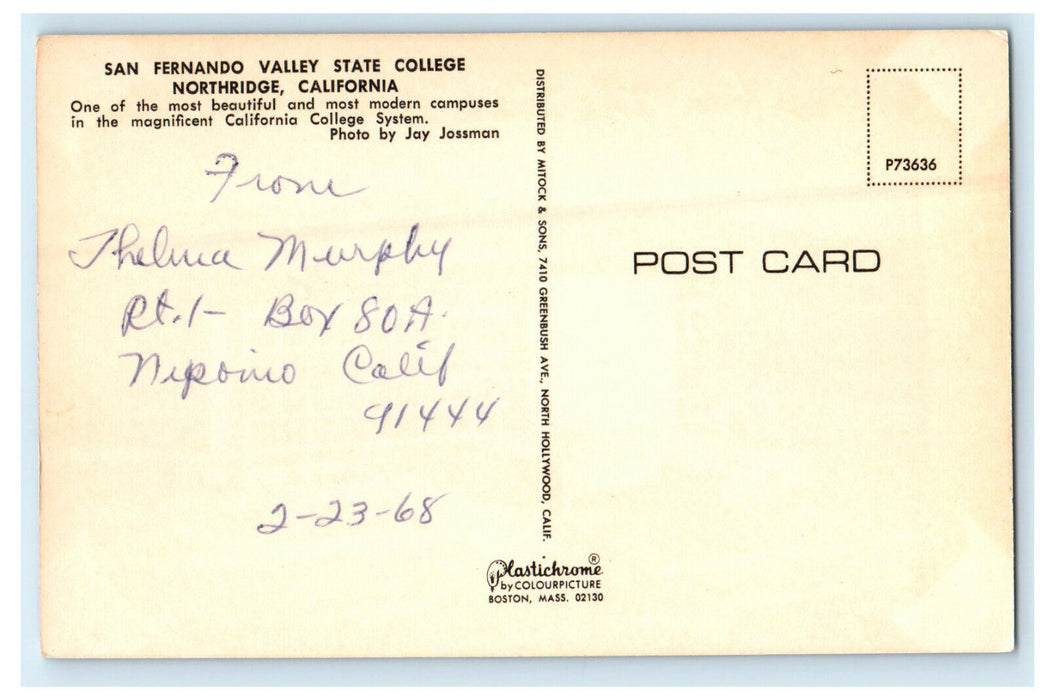 SAN FERNANDO VALLEY STATE COLLEGE
NORTHRIDGE, CALIFORNIA
One of the most beautiful and most modern campuses
in the magnificent California College System.
Photo by Jay Jossman
From
Thelma Murphy
Rt. 1- Box 80A.
Nipomo Calif
91444
2-23-68
DISTRIBUTED BY MITOCK & SONS, 7410 GREENBUSH AVE., NORTH HOLLYWOOD, CALIF.
Plastichrome ®
by COLOURPICTURE
BOSTON, MASS. 02130
P73636
POST CARD